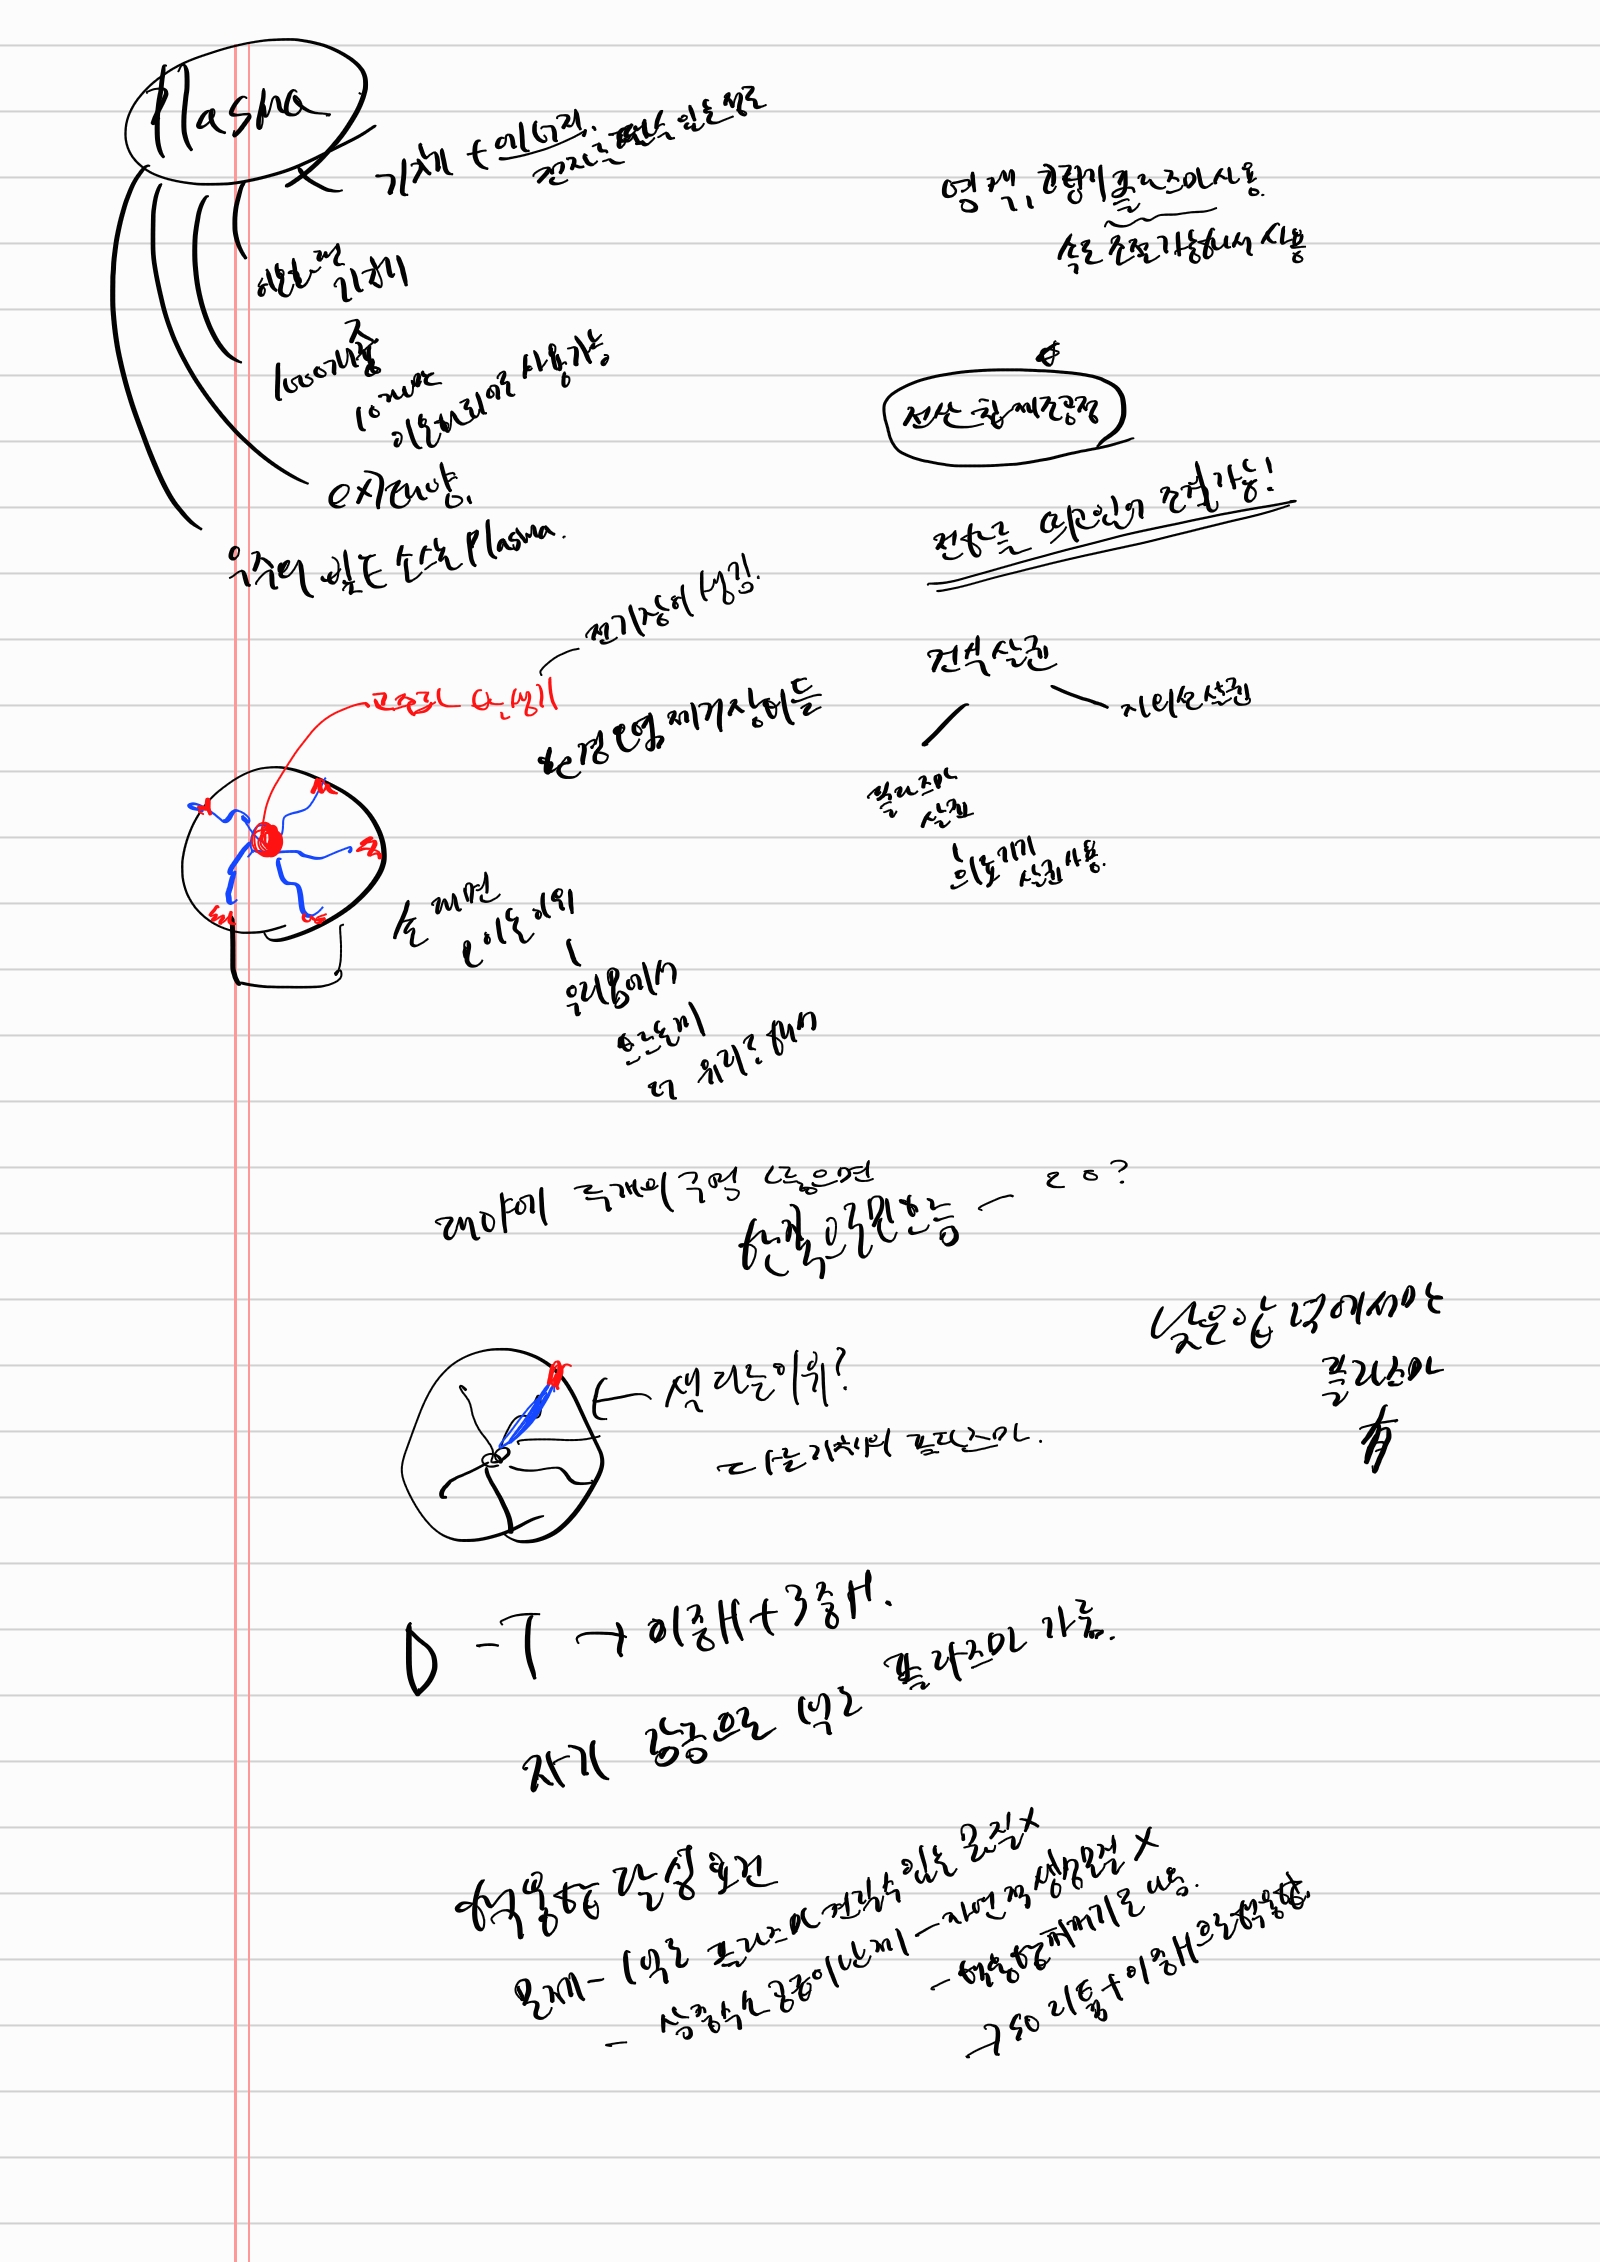 Plasma
기체 + 에너지.
전자를 일을 정도
이온화된
기체
1000개중
10개만
이온화되어도 사용가능
ex) 태양.
우주의 빛도 소스는 Plasma.
플라즈마 사용.
속도 조절 가능해서 사용
전산 칩 제조공정
조절가능!
전기장이 생김.
고주파 발생기
환경오염 제거장비들
건식 살균
자외선 살균
플라즈마
살균
의료기기
살균 사용.
손 대면
이동이뤄
우리몸에서
흐르는게
더 유리? 해서
대야에 두개의 구역 넣으면
한쪽으로만 흐름
20?
낮은 압력에서만
플라즈마
有
색 다른이유?
다른 기체의 플라즈마.
D - T → 이중H + 3중H.
자기 장으로 1억도 플라즈마 가둠.
핵융합 달성 조건
문제 - 1억도 플라즈마 견딜수 있는 물질 X
- 삼중수소 공급이 난제 - 자연적 생성물질 X
- 핵융합 찌꺼기로 나옴.
그 so 리튬 + 이중H으로 핵융합.